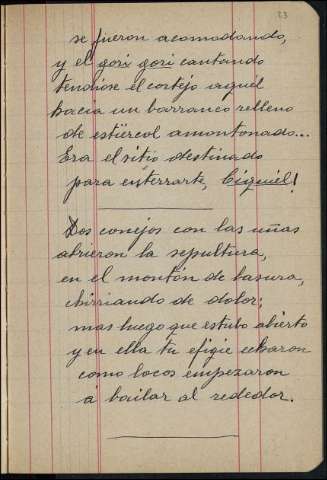 23
se fueron acomodando,
y el gori gori cantando
tendióse el cortejo aquél
hacia un barranco relleno
de estiércol amontonado...
Era el sitio destinado
para enterrarte, Ciquiél!
Dos conejos con las uñas
abrieron la sepultura,
en el montón de basura,
chirriando de dolor;
mas luego que estubo abierto
y en ella tu efigie echaron
como locos empezaron
á bailar al rededor.